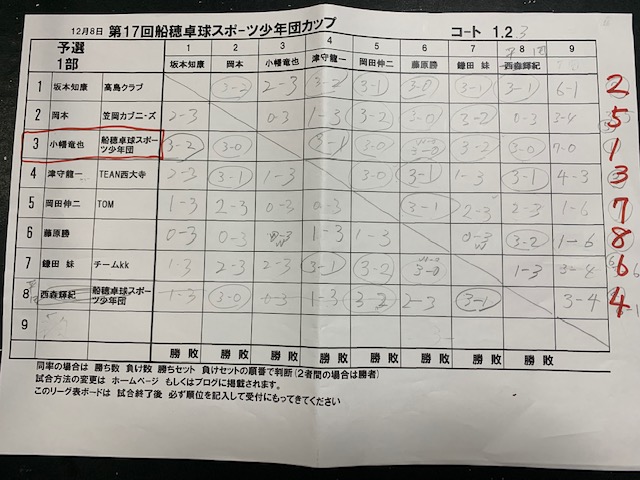 12月8日 第17回船穂卓球スポーツ少年団カップ コート 1.2 3
予選 1 2 3 4 5 6 7 8 9
1部 坂本知康 岡本 小幡竜也 津守龍一 岡田伸二 藤原勝 鎌田 妹 西森輝紀
1 坂本知康 高島クラブ 3-2 2-3 3-2 3-1 3-0 3-1 3-1 6-1 2
2 岡本 笠岡カブニーズ 2-3 0-3 1-3 3-2 3-0 3-2 0-3 3-4 5
3 小幡竜也 船穂卓球スポーツ少年団 3-2 3-0 3-1 3-0 3-0 3-2 3-0 7-0 1
4 津守龍一 TEAN西大寺 2-3 3-1 1-3 3-0 3-1 1-3 3-1 4-3 3
5 岡田伸二 TOM 1-3 2-3 0-3 0-3 3-1 2-3 2-3 1-6 7
6 藤原勝 0-3 0-3 0-3 1-3 1-3 0-3 3-2 1-6 8
7 鎌田 妹 チームkk 1-3 2-3 2-3 3-1 3-2 3-0 1-3 3-4 6
8 西森輝紀 船穂卓球スポーツ少年団 1-3 3-0 0-3 1-3 3-2 2-3 3-1 3-4 4
9
勝 敗 勝 敗 勝 敗 勝 敗 勝 敗 勝 敗 勝 敗 勝 敗
同率の場合は 勝ち数 負け数 勝ちセット 負けセットの順番で判断(2者間の場合は勝者)
試合方法の変更は ホームページ もしくはブログに掲載されます。
このリーグ表ボードは 試合終了後 必ず順位を記入して受付にもってきてください